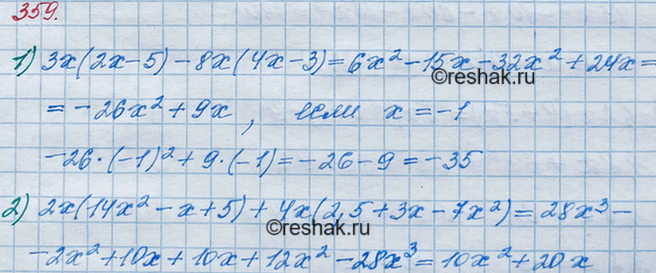 359.
1) 3x(2x-5)-8x(4x-3)=6x²-15x-32x²+24x=
©reshak.ru
=-26x²+9x, если x=-1
-26·(-1)²+9·(-1)=-26-9=-35
2) 2x(14x²-x+5)+4x(2,5+3x-7x²)=28x³-
©reshak.ru
-2x²+10x+10x+12x²-28x³=10x²+20x